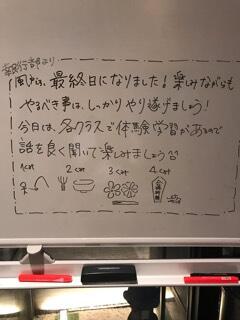 執行部より
最終日になりました！楽しみながらも
やるべき事は、しっかりやり遂げましょう！
今日は、各クラスで体験学習があるので
話を良く聞いて楽しみましょう
1くみ 2くみ 3くみ 4くみ